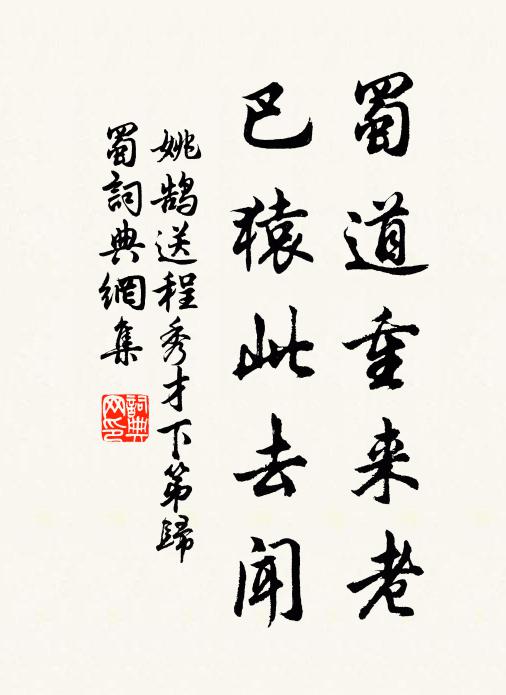 蜀道重来老
巴猿此去闻
姚鹄送程秀才下第歸
蜀詞典網集
詞典网印